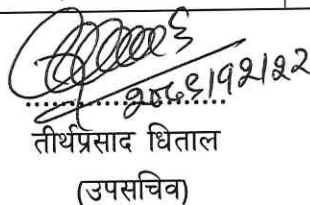 २०८१।१२।२२
तीर्थप्रसाद धिताल
(उपसचिव)